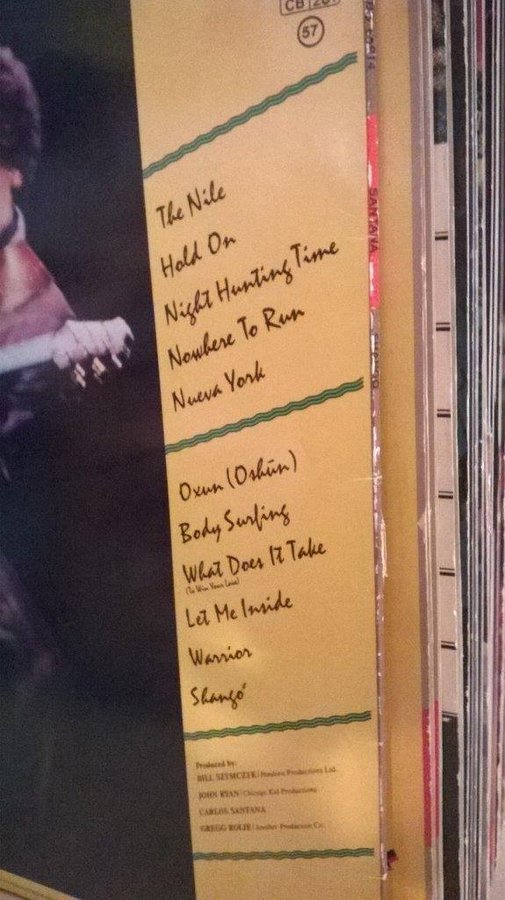 57
The Nile
Hold On
Night Hunting Time
Nowhere To Run
Nueva York
Oxun (Oshūn)
Body Surfing
What Does It Take
(To Win Your Love)
Let Me Inside
Warrior
Shangó
Produced by:
BILL SZYMCZYK/Pandora Productions Ltd.
JOHN RYAN/Chicago Kid Productions
CARLOS SANTANA
GREGG ROLIE/Another Production Co.
SANTANA